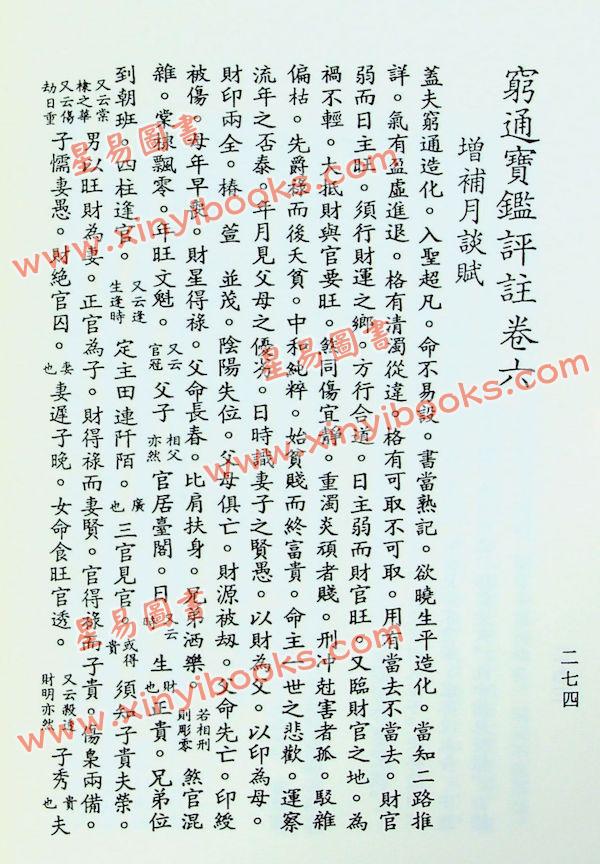 窮通寶鑑評註 卷六
增補月談賦
蓋夫窮通造化。入聖超凡。命不易設。書當熟記。欲曉生平造化。當知二路推
詳。氣有盈虛進退。格有清濁從違。格有可取不可取。用有當去不當去。財官
弱而日主旺。須行財運之鄉。方行合道。日主弱而財官旺。又臨財官之地。為
禍不輕。大抵財與官要旺。煞同傷宜靜。重濁炎頑者賤。刑冲尅害者孤。駁雜
偏枯。先爵祿而後夭貧。中和純粹。始貧賤而終富貴。命主一世之悲歡。運察
流年之否泰。年月見父母之優劣。日時識妻子之賢愚。以財為父。以印為母。
財印兩全。椿萱並茂。陰陽失位。父母俱亡。財源被刼。父命先亡。印綬
被傷。母年早喪。財星得祿。父命長春。比肩扶身。兄弟洒樂。若相刑則彫零 煞官混
雜。棠棣飄零。年旺文魁。又云官冠 父子 相父亦然 官居臺閣。日 又云時 生 財也 正貴。兄弟位
到朝班。四柱逢官。又云逢生逢時 定主田連阡陌。廣也 三官見官。或得貴 須知子貴夫榮。
又云棠棣之華 男以旺財為妻。正官為子。財得祿而妻賢。官得祿而子貴。傷梟兩備。
又云傷劫日重 子懦妻愚。財絕官囚。妻也 妻遲子晚。女命食旺官透。又云殺逢財明亦然 子秀 貴也 夫
二七四
星易圖書
www.xinyibooks.com
星易圖書
www.xinyibooks.com
星易圖書
www.xinyibooks.com
星易圖書
www.xinyibooks.com